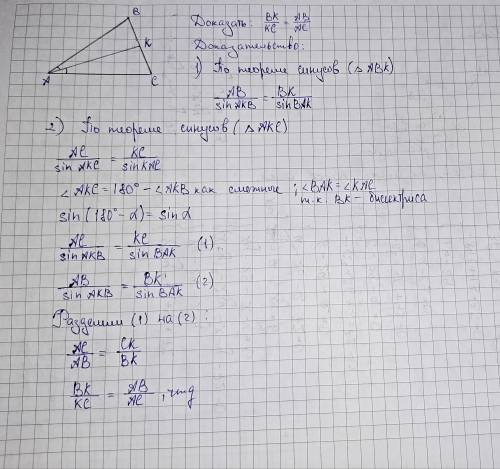 B
K
A
C
Доказать: BK/KC = AB/AC
Доказательство:
1) По теореме синусов (△ABK)
AB/sinAKB = BK/sinBAK
2) По теореме синусов (△AKC)
AC/sin AKC = KC/sinKAC
∠AKC = 180° - ∠AKB как смежные ; ∠BAK = ∠KAC
т.к. BK - биссектриса
sin(180° - α) = sin α
AC/sin AKB = KC/sin BAK (1)
AB/sin AKB = BK/sin BAK (2)
Разделим (1) на (2) :
AC/AB = CK/BK
BK/KC = AB/AC , чтд